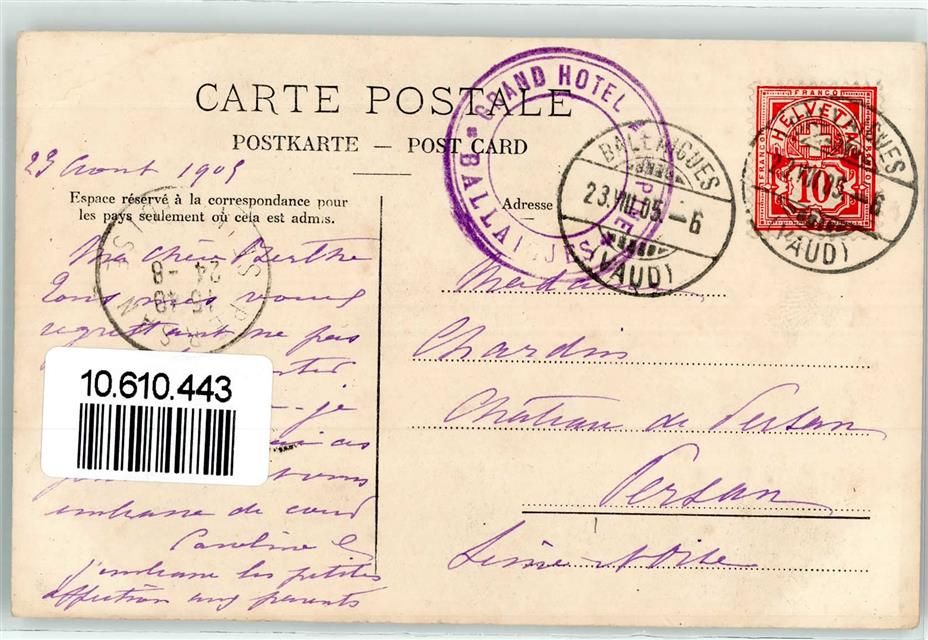 CARTE POSTALE
POSTKARTE — POST CARD
23 Aout 1905
Espace réservé à la correspondance pour
les pays seulement où cela est admis.
Adresse
GRAND HOTEL
BALLAIGUES
23.VIII.05.-6
(VAUD)
FRANCO
HELVETIA
10
BALLAIGUES
(VAUD)
PERSAN
24 - 8
15 40
Ma chère Berthe
regrettant ne pas
10.610.443
-je
vous
embrasse de cœur
Caroline
j'embrasse les petites
affection aux parents
Madame
Chardin
Château de Persan
Persan
Seine & Oise